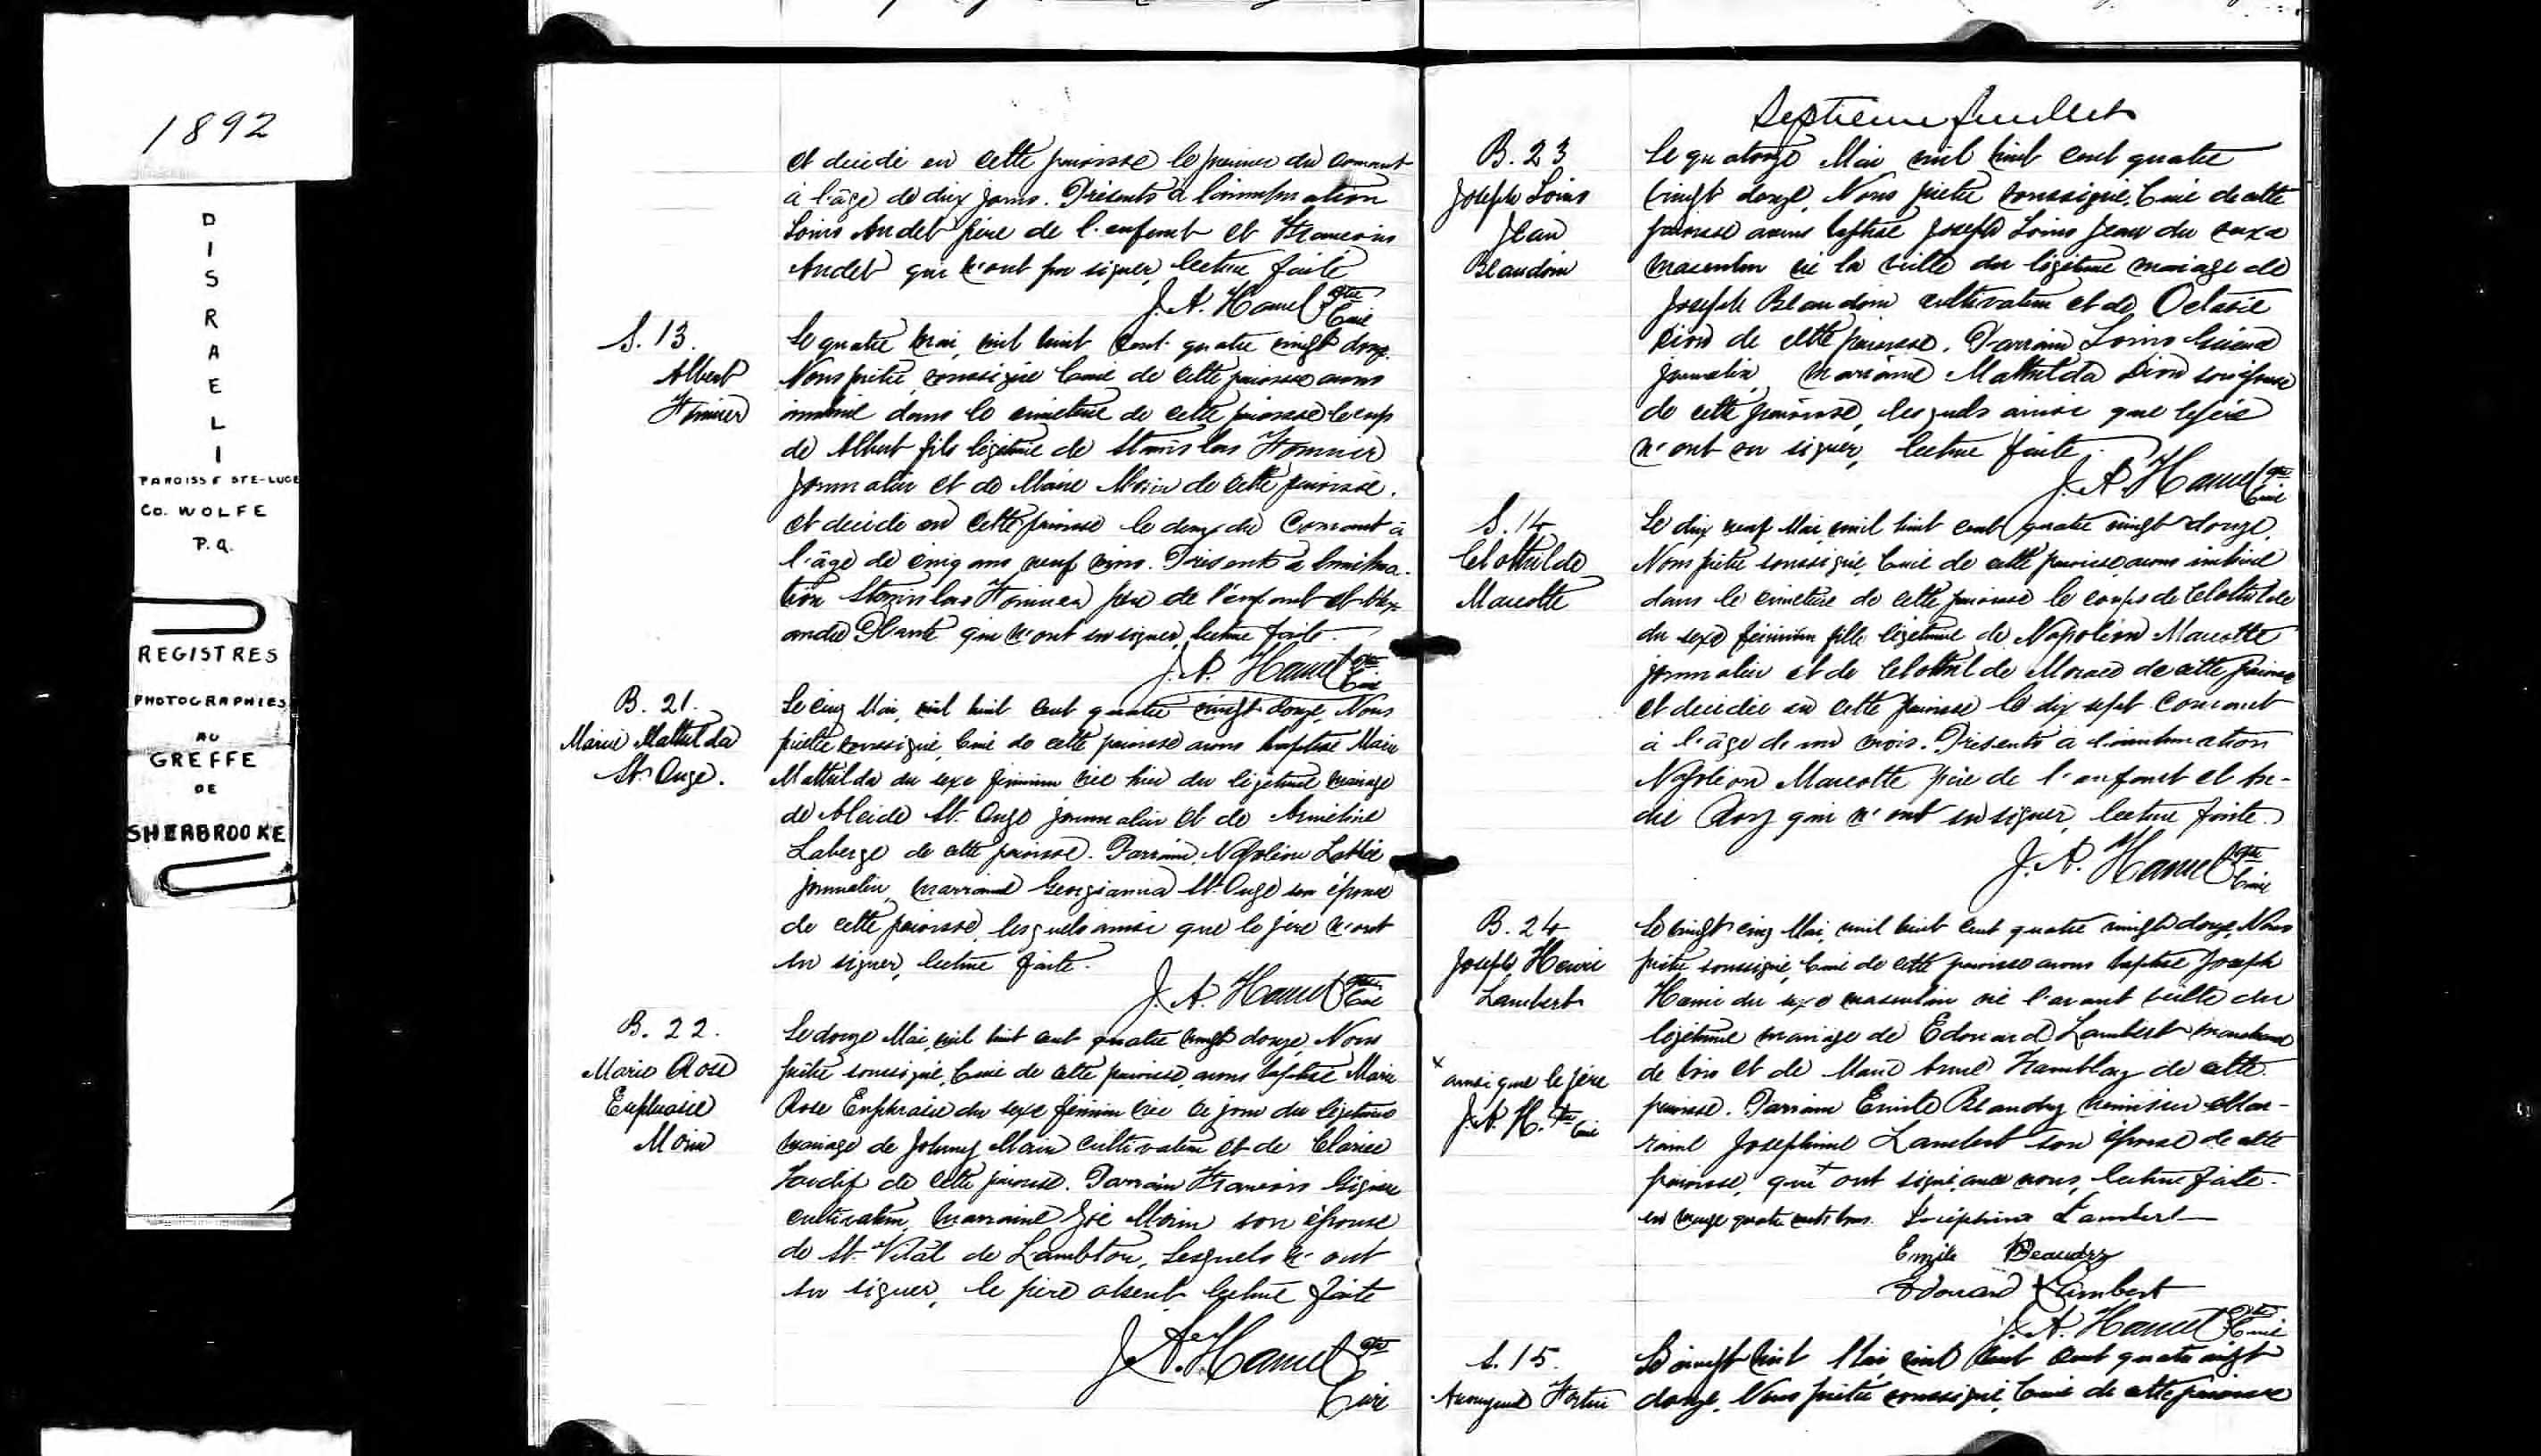 1892
D
I
S
R
A
E
L
I
PAROISSE STE-LUCE
Co. WOLFE
P.Q.
REGISTRES
PHOTOGRAPHIES
AU
GREFFE
DE
SHERBROOKE
et décédé en cette paroisse le premier du courant
à l'âge de dix jours. Présents à l'inhumation
Louis Audet père de l'enfant et François
Audet qui n'ont pu signer, lecture faite
J. A. Hamel Ptre
Curé
S. 13.
Albert
Le quatre mai, mil huit cent quatre vingt douze.
Nous prêtre soussigné Curé de cette paroisse avons
inhumé dans le cimetière de cette paroisse le corps
de Albert fils légitime de Stanislas
journalier et de Marie Morin de cette paroisse.
et décédé en cette paroisse le deux du Courant à
l'âge de cinq ans neuf mois. Présents à l'inhuma-
tion Stanislas père de l'enfant et Alex-
andre Plante qui n'ont su signer, lecture faite.
J. A. Hamel Ptre
Curé
B. 21.
Marie Mathilda
St. Onge.
Le cinq Mai, mil huit cent quatre vingt douze, Nous
prêtre soussigné, Curé de cette paroisse avons baptisé Marie
Mathilda du sexe féminin née hier du légitime mariage
de Alcide St. Onge journalier et de
Laberge de cette paroisse. Parrain, Napoléon Labbée
journalier, marraine Georgianna St. Onge son épouse
de cette paroisse, lesquels ainsi que le père n'ont
su signer, lecture faite.
J. A. Hamel Ptre
Curé
B. 22.
Marie Rose
Euphrasie
Morin
Le douze Mai, mil huit cent quatre vingt douze, Nous
prêtre soussigné, Curé de cette paroisse, avons baptisé Marie
Rose Euphrasie du sexe féminin née ce jour du légitime
mariage de Johnny Morin cultivateur et de Clarise
Tardif de cette paroisse. Parrain François
cultivateur, marraine Zoé Morin son épouse
de St. Vital de Lambton, lesquels n'ont
su signer, le père absent, lecture faite
J. A. Hamel Ptre
Curé
Septième feuillet
B. 23
Joseph Louis
Jean
Beaudoin
Le quatorze Mai mil huit cent quatre
vingt douze, Nous prêtre soussigné, Curé de cette
paroisse avons baptisé Joseph Louis Jean du sexe
masculin né la veille du légitime mariage de
Joseph Beaudoin cultivateur et de Octavie
Dion de cette paroisse. Parrain Louis
journalier, marraine Mathilda Dion son épouse
de cette paroisse, lesquels ainsi que le père
n'ont su signer, lecture faite.
J. A. Hamel Ptre
Curé
S. 14
Clothilde
Marcotte
Le dix neuf Mai, mil huit cent quatre vingt douze,
Nous prêtre soussigné, Curé de cette paroisse, avons inhumé
dans le cimetière de cette paroisse le corps de Clothilde
du sexe féminin fille légitime de Napoléon Marcotte
journalier et de Clothilde de cette paroisse
et décédée en cette paroisse le dix sept Courant
à l'âge de un mois. Présents à l'inhumation
Napoléon Marcotte père de l'enfant et An-
dré Roy qui n'ont su signer, lecture faite.
J. A. Hamel Ptre
Curé
B. 24
Joseph Henri
Lambert
x ainsi que le père
J. A. H. Ptre Curé
Le vingt cinq Mai, mil huit cent quatre vingt douze, Nous
prêtre soussigné, Curé de cette paroisse avons baptisé Joseph
Henri du sexe masculin né l'avant veille du
légitime mariage de Edouard Lambert marchand
de bois et de Marie Anne Tremblay de cette
paroisse. Parrain Emile Beaudry Mar-
raine Joséphine Lambert son épouse de cette
paroisse, qui x ont signé avec nous, lecture faite.
Joséphine Lambert
Emile Beaudry
Edouard Lambert
J. A. Hamel Ptre
Curé
S. 15.
Anonyme Fortin
Le vingt huit Mai mil huit cent quatre vingt
douze, Nous prêtre soussigné, Curé de cette paroisse